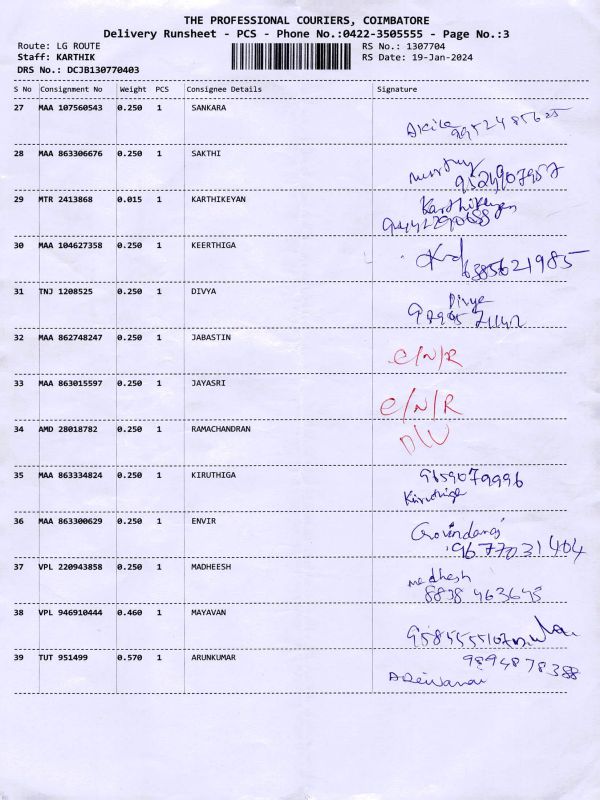 THE PROFESSIONAL COURIERS, COIMBATORE
Delivery Runsheet - PCS - Phone No.:0422-3505555 - Page No.:3
Route: LG ROUTE
Staff: KARTHIK
DRS No.: DCJB130770403
RS No.: 1307704
RS Date: 19-Jan-2024
S No Consignment No Weight PCS Consignee Details Signature
27 MAA 107560543 0.250 1 SANKARA
Akila 9952485625
28 MAA 863306676 0.250 1 SAKTHI
9524907957
29 MTR 2413868 0.015 1 KARTHIKEYAN
Karthikeyan
9442290688
30 MAA 104627358 0.250 1 KEERTHIGA
6385621985
31 TNJ 1208525 0.250 1 DIVYA
Divya
32 MAA 862748247 0.250 1 JABASTIN
C/N/R
33 MAA 863015597 0.250 1 JAYASRI
C/N/R
34 AMD 28018782 0.250 1 RAMACHANDRAN
35 MAA 863334824 0.250 1 KIRUTHIGA
9659079996
Kiruthiga
36 MAA 863300629 0.250 1 ENVIR
Govindaraj
9677031404
37 VPL 220943858 0.250 1 MADHEESH
medhesh
8838 463645
38 VPL 946910444 0.460 1 MAYAVAN
39 TUT 951499 0.570 1 ARUNKUMAR
9894878388